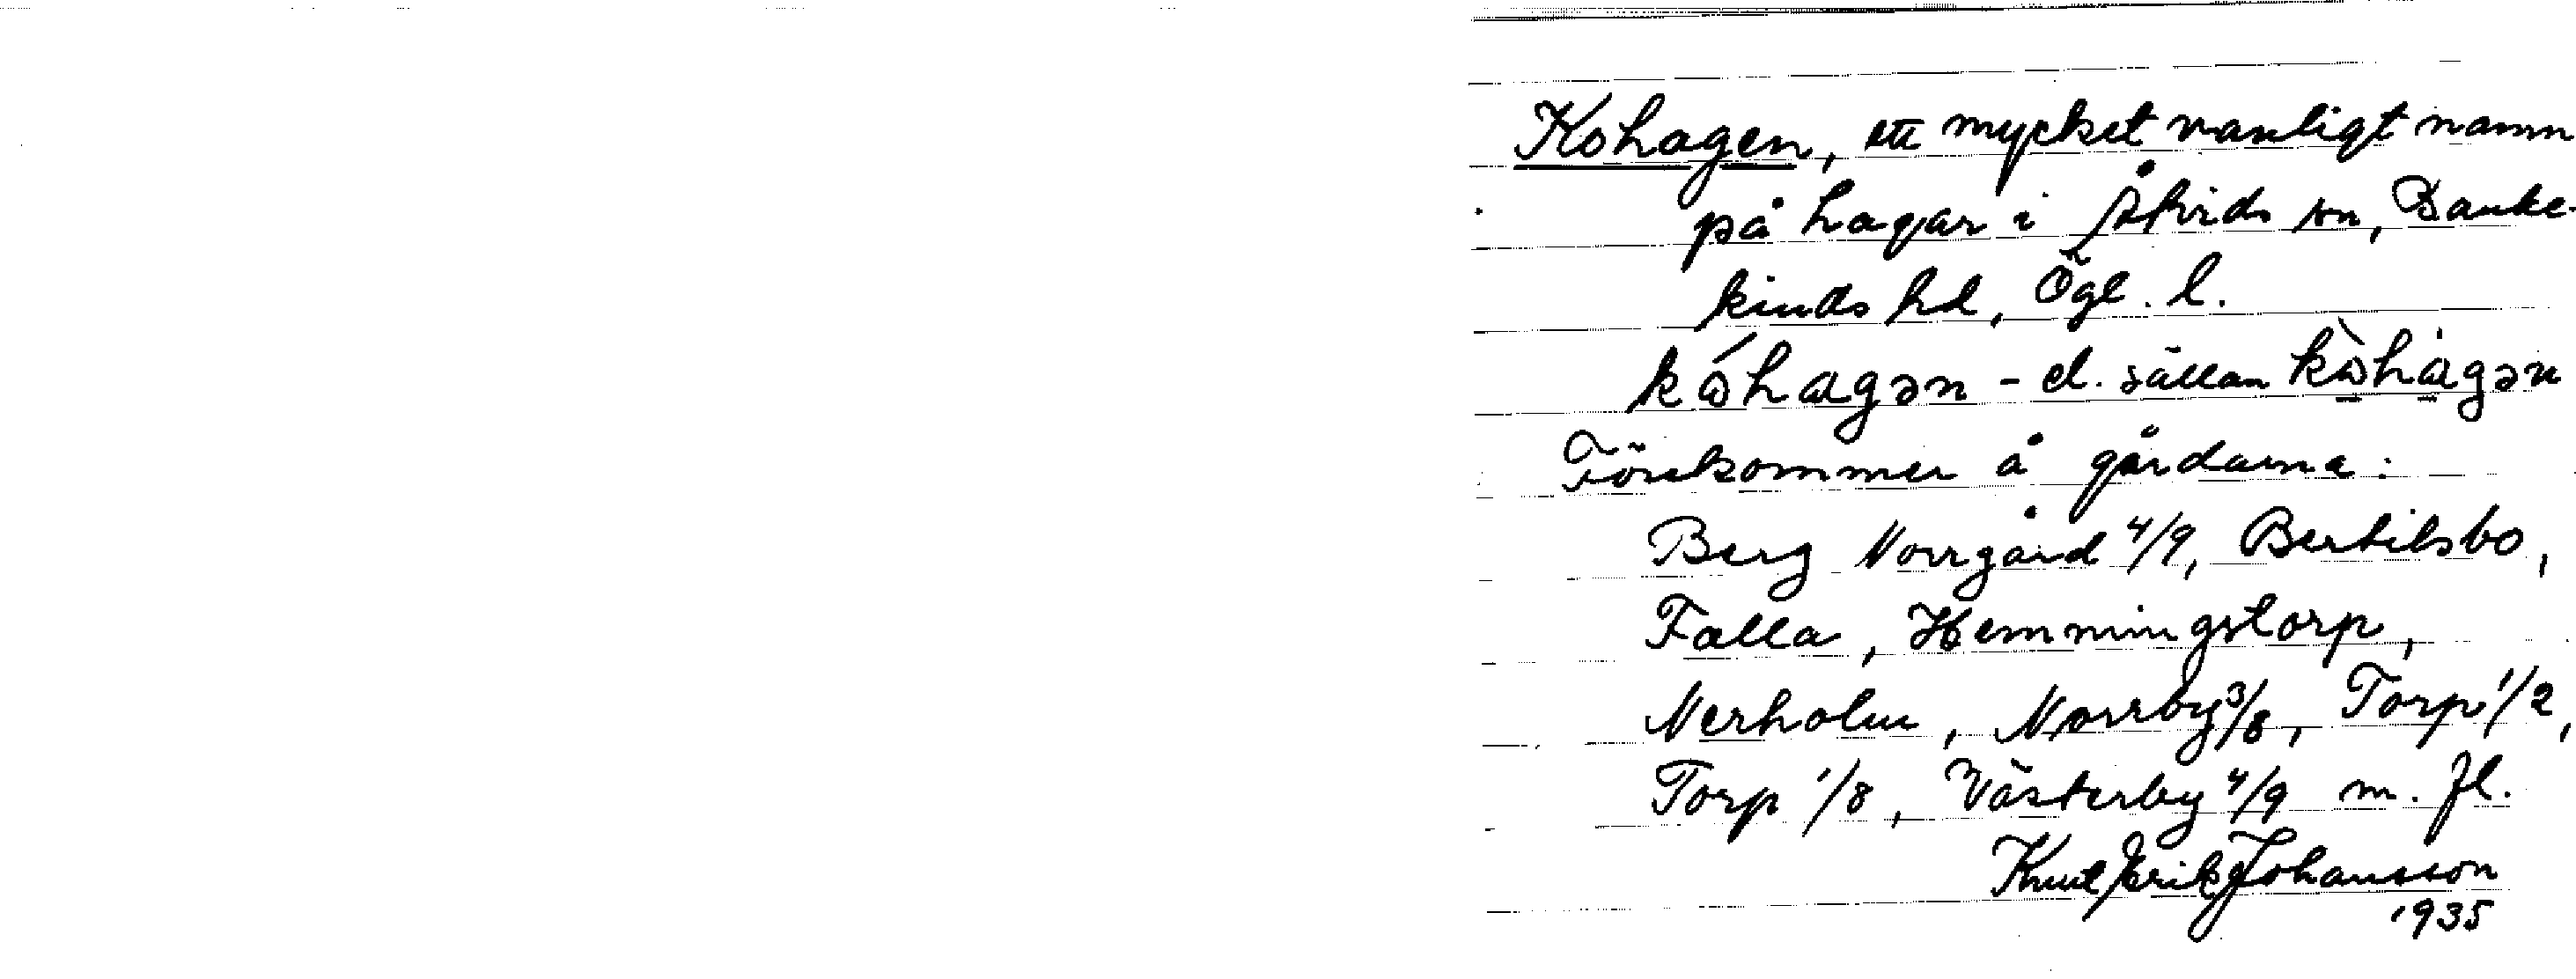 Kohagen, ett mycket vanligt namn
på hagar i Åtvids sn, Banke-
kinds hd, Ögl. l.
kóhagən - el. sällan kòhàgən
Förekommer å gårdarna:
Berg Norrgård 4/9, Bertilsbo,
Falla, Hemmingstorp,
Nerholm, Norrby 3/8, Torp 1/2,
Torp 1/8, Västerby 4/9 m. fl.
Knut Erik Johansson
1935